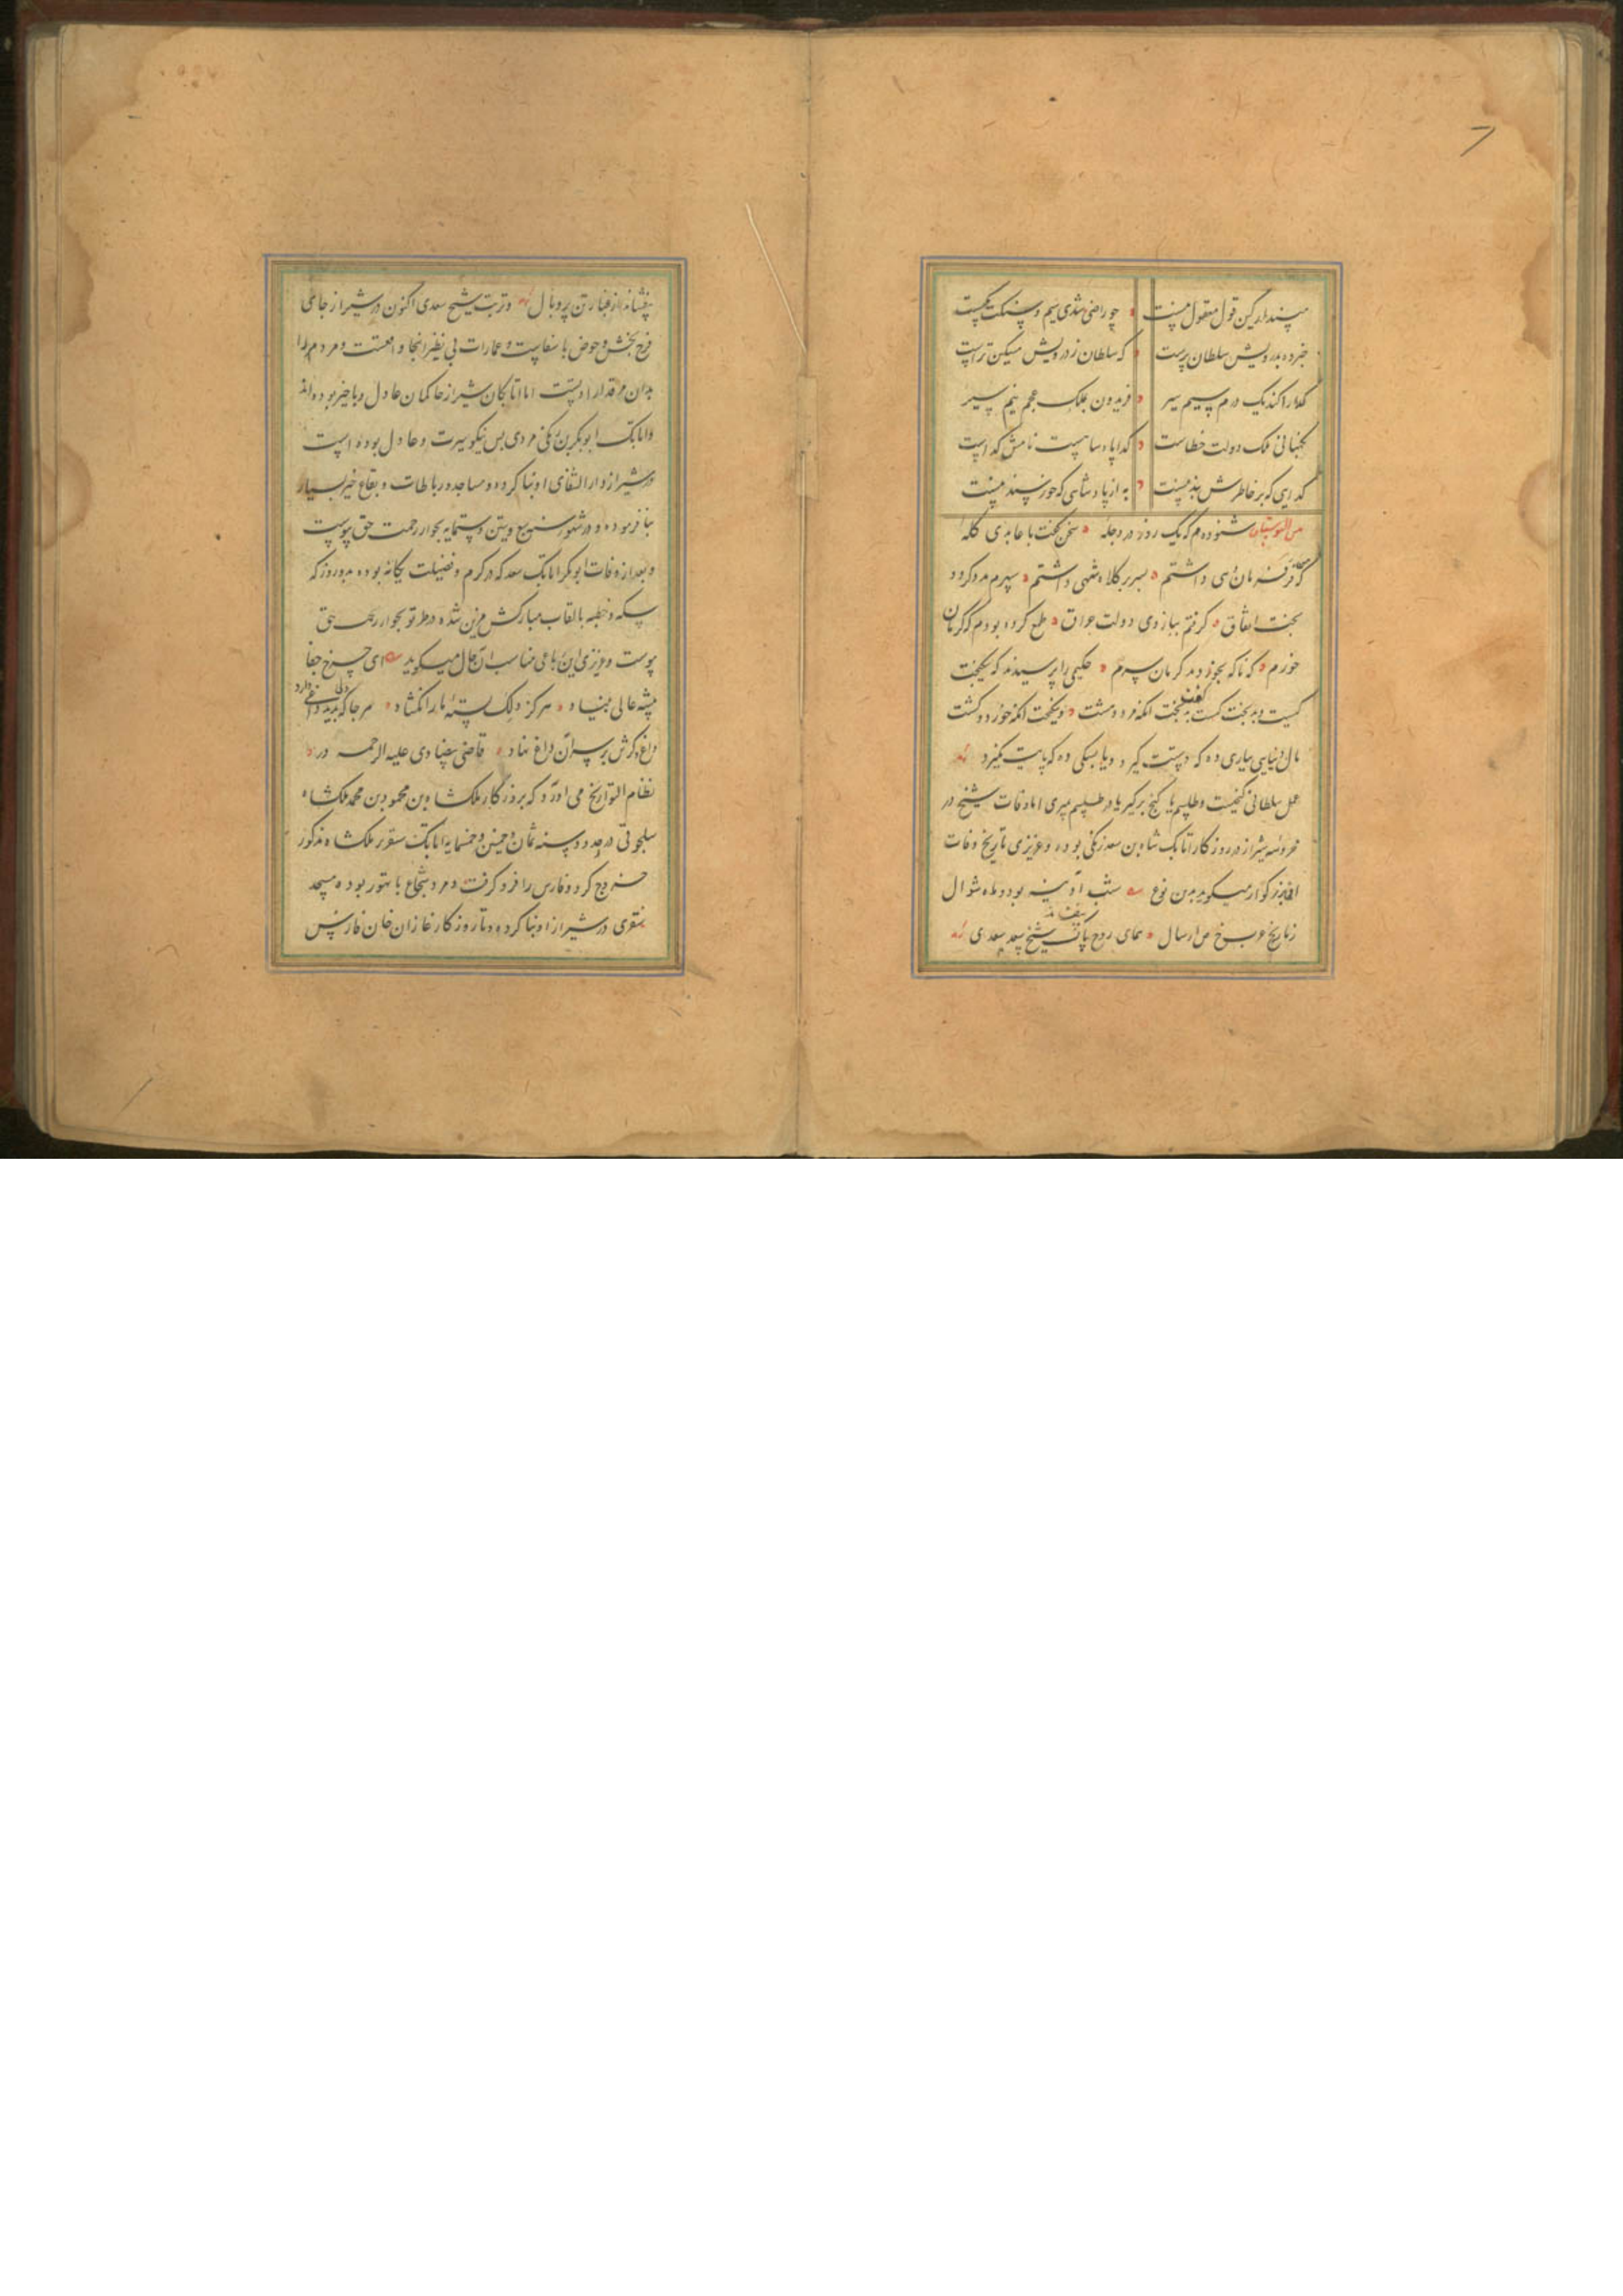 مپندار کین قول معقول نیست چو راضی شدی سیم و سنگت یکیست
خبر ده بدرویش سلطان پرست که سلطان ز درویش مسکین تراست
گدا را کند یک درم سیم سیر فریدون بملک عجم نیم سیر
نگهبانی ملک و دولت خطاست گدا پادشاهست نامش گداست
گدایی که بر خاطرش بند نیست به از پادشاهی که خورسند نیست
من البوستان شنودم که یک روز در دجله سخن گفت با عابدی کله
که من فر فرمان دهی داشتم بسر بر کلاه مهی داشتم سپهرم مدد کرد و
بخت اتفاق گرفتم ببازوی دولت عراق طمع کرده بودم که کرمان
خورم که ناگه بخوردند کرمان سرم حکیمی را پرسیدند که نیکبخت
کیست و بدبخت کیست گفت نیکبخت آنکه خورد و کشت
مال دنیایی بیاری ده که دستت گیرد و یا بسگی ده که پایت نگیرد
عمل سلطانی گنجیست و طلسم یا گنج برگیر یا در طلسم میری اما وفات شیخ در
محروسه شیراز در روزگار اتابک شاه بن سعد زنگی بوده و عزیزی تاریخ وفات
آن بزرگوار میگوید بدین نوع شب آدینه بود و ماه شوال
ز تاریخ عرب خ ص ا سال همای روح پاک شیخ سعدی
بیفشاند از غبار تن پر و بال و تربت شیخ سعدی اکنون در شیراز جای
فرح بخش و حوض با صفاست و عمارات بی نظیر آنجا واقعست و مردم را
بدان مرقد ارادتست اما اتابکان شیراز حاکمان عادل و با خیر بوده اند
و اتابک ابوبکر بن زنگی مردی بس نیکو سیرت و عادل بوده است
و در شیراز دار الشفای او بنا کرده و مساجد و رباطات و بقاع خیر بسیار
بنا فرموده و در شهور سنه سبع و ستین و ستمایه بجوار رحمت حق پیوست
و بعد از وفات ابوبکر اتابک سعد که در کرم و فضیلت یگانه بوده بدو روز که
سکه و خطبه بالقاب مبارکش مزین شده در طرتو بجوار رحمت حق
پیوست و عزیزی این رباعی مناسب آن حال میگوید ای چرخ جفا
پیشه عالی بنیاد هرگز دلک بسته ما را نگشاد هر جا که بدید دلی داغی دارد
داغ دگرش بر سر آن داغ نهاد قاضی بیضاوی علیه الرحمه در
نظام التواریخ می آورد که بروزگار ملکشاه بن محمود بن محمد ملکشاه
سلجوقی در حدود سنه ثمان و خمسین و خمسمایه اتابک سنقر بر ملکشاه مذکور
خروج کرد و فارس را فرو گرفت و مرد شجاع با تهور بوده مسجد
سنقری در شیراز او بنا کرده و تا روزگار غازان خان فارس